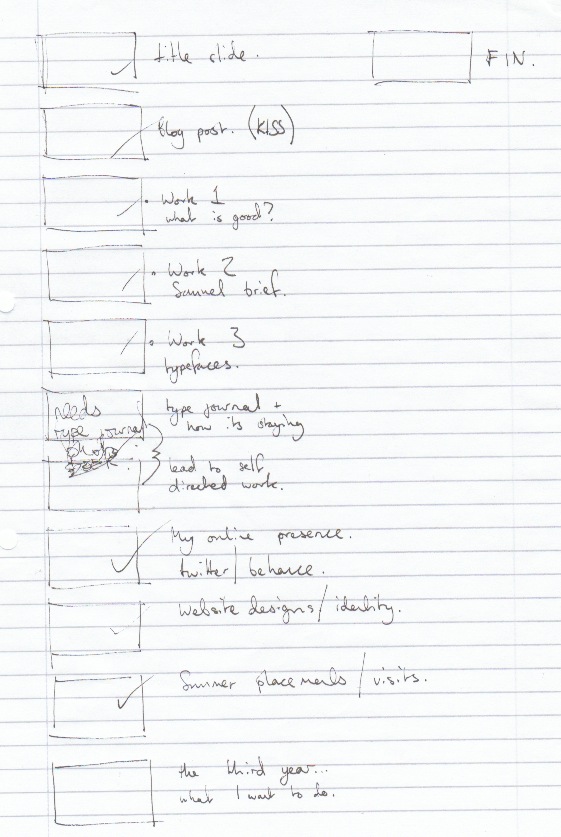 title slide.
FIN.
Blog post. (KISS)
Work 1
what is good?
Work 2
Sanuel brief.
Work 3
typefaces.
needs
type journal
photo
type journal +
how its staying
lead to self
directed work.
My online presence.
twitter/behance.
website designs/identity.
Summer placements/visits.
the third year...
what I want to do.